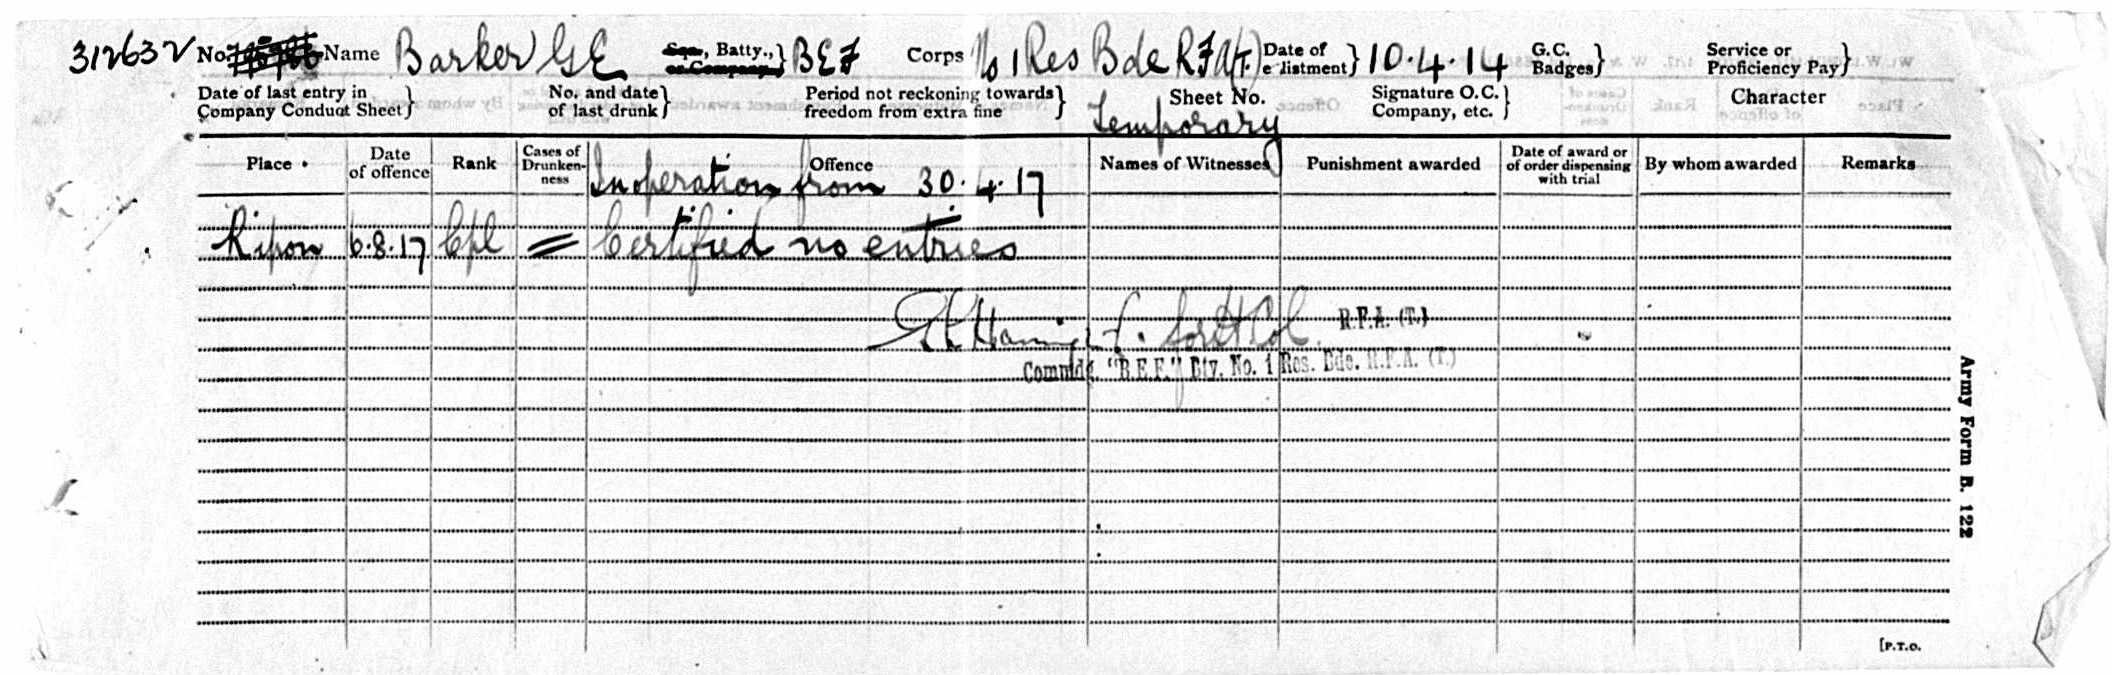 312632 No. Name Barker G E Sqn., Batty., or Company } B E F Corps No 1 Res Bde R F A (T) Date of enlistment } 10.4.14 G.C. Badges } Service or Proficiency Pay }
Date of last entry in Company Conduct Sheet } No. and date of last drunk } Period not reckoning towards freedom from extra fine } Sheet No. Temporary Signature O.C. Company, etc. } Character
Place Date of offence Rank Cases of Drunkenness Offence Names of Witnesses Punishment awarded Date of award or of order dispensing with trial By whom awarded Remarks
In operation from 30.4.17
Ripon 6.8.17 Cpl = Certified no entries
for Lt Col. R.F.A. (T.)
Commdg. "B.E.F." Bty. No. 1 Res. Bde. R.F.A. (T.)
Army Form B. 122
[P.T.O.